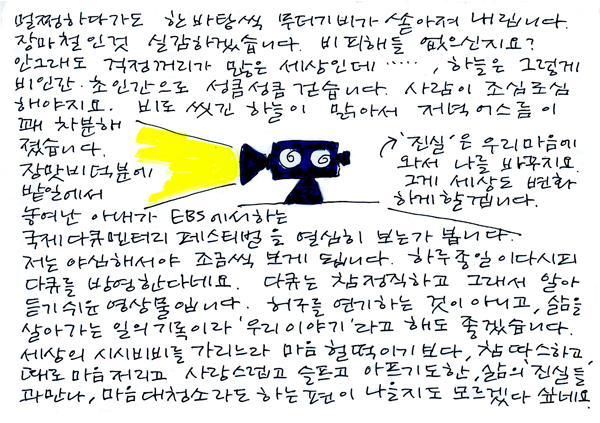 멀쩡하다가도 한바탕씩 무더기비가 쏟아져 내립니다.
장마철인것 실감하겠습니다. 비피해들 없으신지요?
안그래도 걱정꺼리가 많은 세상인데 ‥‥‥, 하늘은 그렇게
비인간·초인간으로 성큼성큼 걷습니다. 사람이 조심조심
해야지요. 비로 씻긴 하늘이 맑아서 저녁어스름이
꽤 차분해
졌습니다.
장맛비 덕분에
밭일에서
놓여난 아내가 EBS에서하는
국제다큐멘터리 페스티벌을 열심히 보는가 봅니다.
저는 야심해서야 조금씩 보게 됩니다. 하루종일이다시피
다큐를 방영한다네요. 다큐는 참 정직하고 그래서 알아
듣기쉬운 영상물입니다. 허구를 연기하는 것이 아니고, 삶을
살아가는 일의 기록이라 '우리이야기'라고 해도 좋겠습니다.
세상의 시시비비를 가리느라 마음 헐떡이기보다, 참 따스하고
때로 마음저리고 사랑스럽고 슬프고 아프기도한, 삶의 '진실'들
과만나, 마음대청소라도 하는 편이 나을지도 모르겠다 싶네요.
'진실'은 우리마음에
와서 나를 바꾸지요.
그게 세상도 변화
하게 할겁니다.